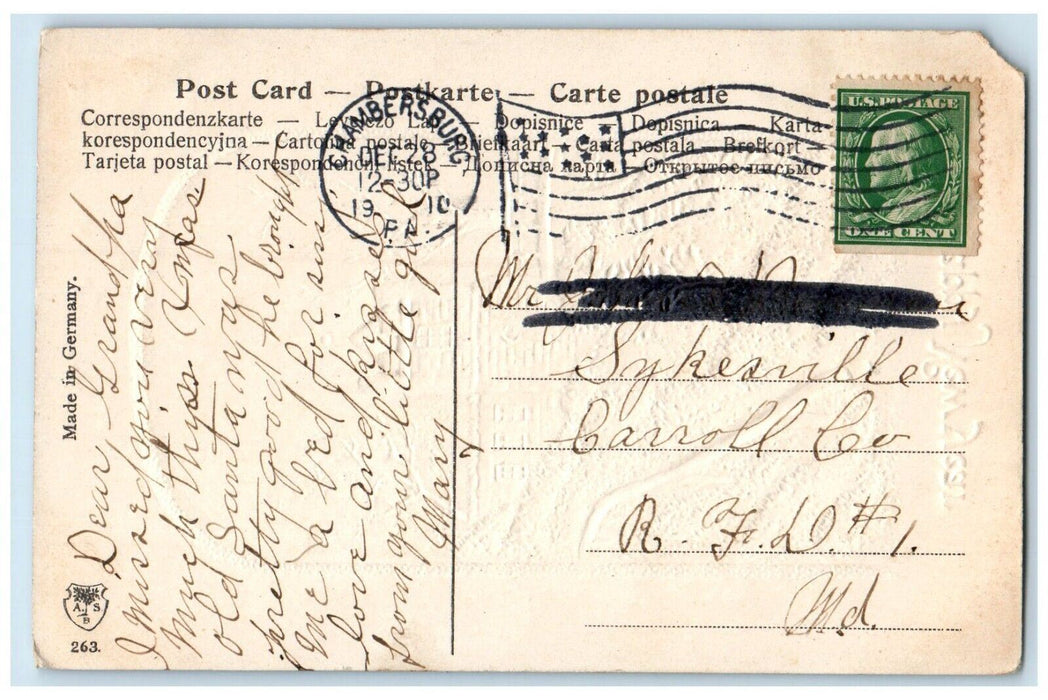 Post Card — Postkarte — Carte postale
Correspondenzkarte — Levelező Lap — Dopisnice — Dopisnica — Karta
korespondencyjna — Cartolina postale — Briefkaart — Carta postala — Brefkort —
Tarjeta postal — Korespondenční listek — Дописна карта — Открытое письмо
CHAMBERSBURG
DEC 28
12 30P
19 10
PA.
U.S. POSTAGE
ONE CENT
Mr
Sykesville
Carroll Co
R. F. D. # 1.
Md.
Made in Germany.
A. S.
B
263.
Dear Grandpa
I missed you very
Much thiss Xmas
old Santa was
pretty good he bought
Me a bed for
love and kysses
from your little girl
Mary